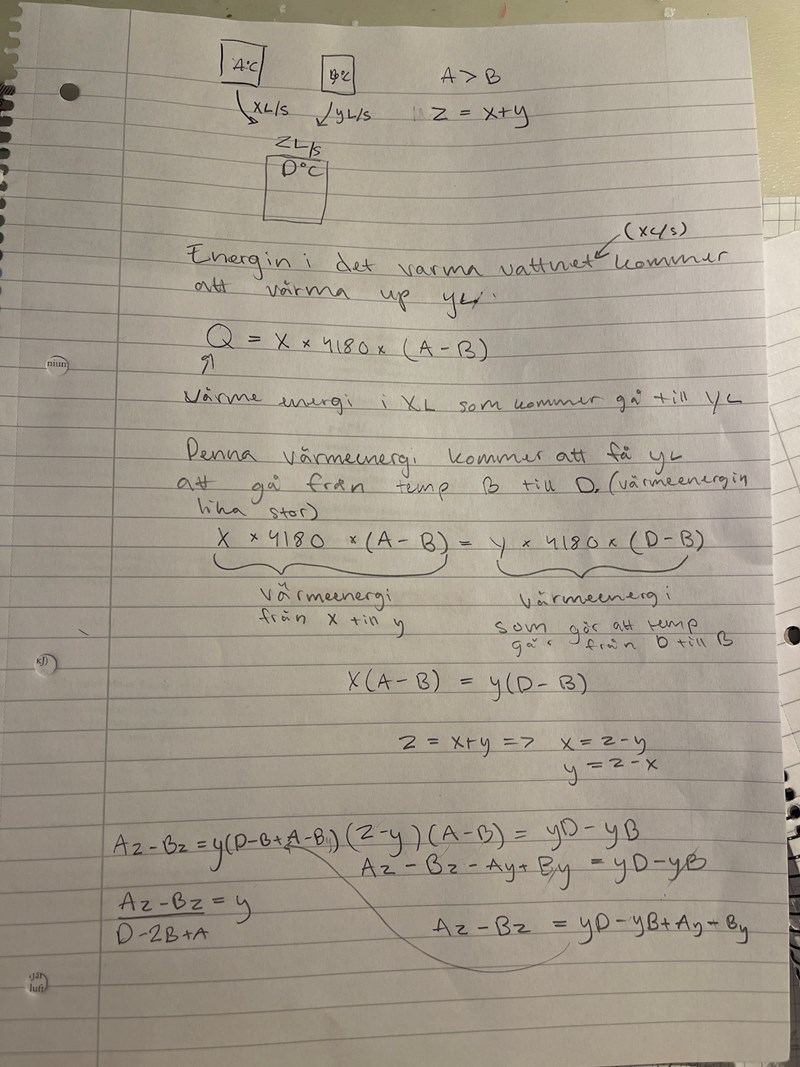 A°C
B°C
A > B
XL/s
yL/s
Z = x+y
ZL/s
D°C
(XL/s)
Energin i det varma vattnet kommer
att värma up yL.
Q = X × 4180 × (A - B)
Värme energi i XL som kommer gå till yL
Denna värmeenergi kommer att få yL
att gå från temp B till D. (värmeenergin
lika stor)
X × 4180 × (A - B) = y × 4180 × (D - B)
värmeenergi
från x till y
värmeenergi
som gör att temp
går från D till B
X(A - B) = y(D - B)
Z = x+y => x = z-y
y = z-x
(Z-y)(A-B) = yD - yB
Az - Bz - Ay + By = yD - yB
Az - Bz = yD - yB + Ay - By
Az - Bz = y(D-B+A-B)
Az - Bz = y
D-2B+A
niun
luft